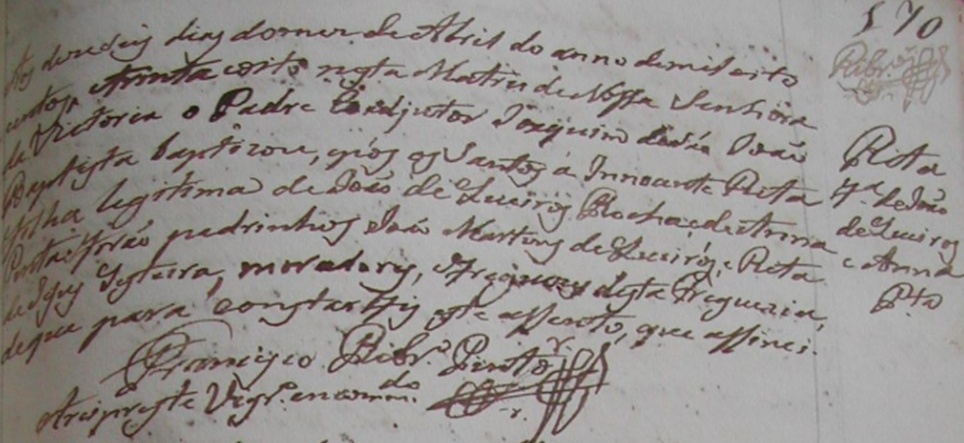 170
Ribr.º
Aos dezeseis dias do mez de Abril do anno de mil e oito
centos, e trinta e oito nesta Matriz de Nossa Senhora
da Victoria o Padre Coadjutor Joaquim de São João
Baptista baptizou, e pôs os Santos á Innocente Rita
filha legitima de João de Queiros Rocha, e de Anna
Pinta: forão padrinhos João Martins de Queirós, e Rita
de Teixeira, moradores, e freguezes desta Freguezia,
de que para constar fis este assento, que assinei.
Francisco Ribr.º Pinto
Arcipreste Vigr.º encom.do
Rita
f.ª de João
de Queiros
e Anna
P.ta